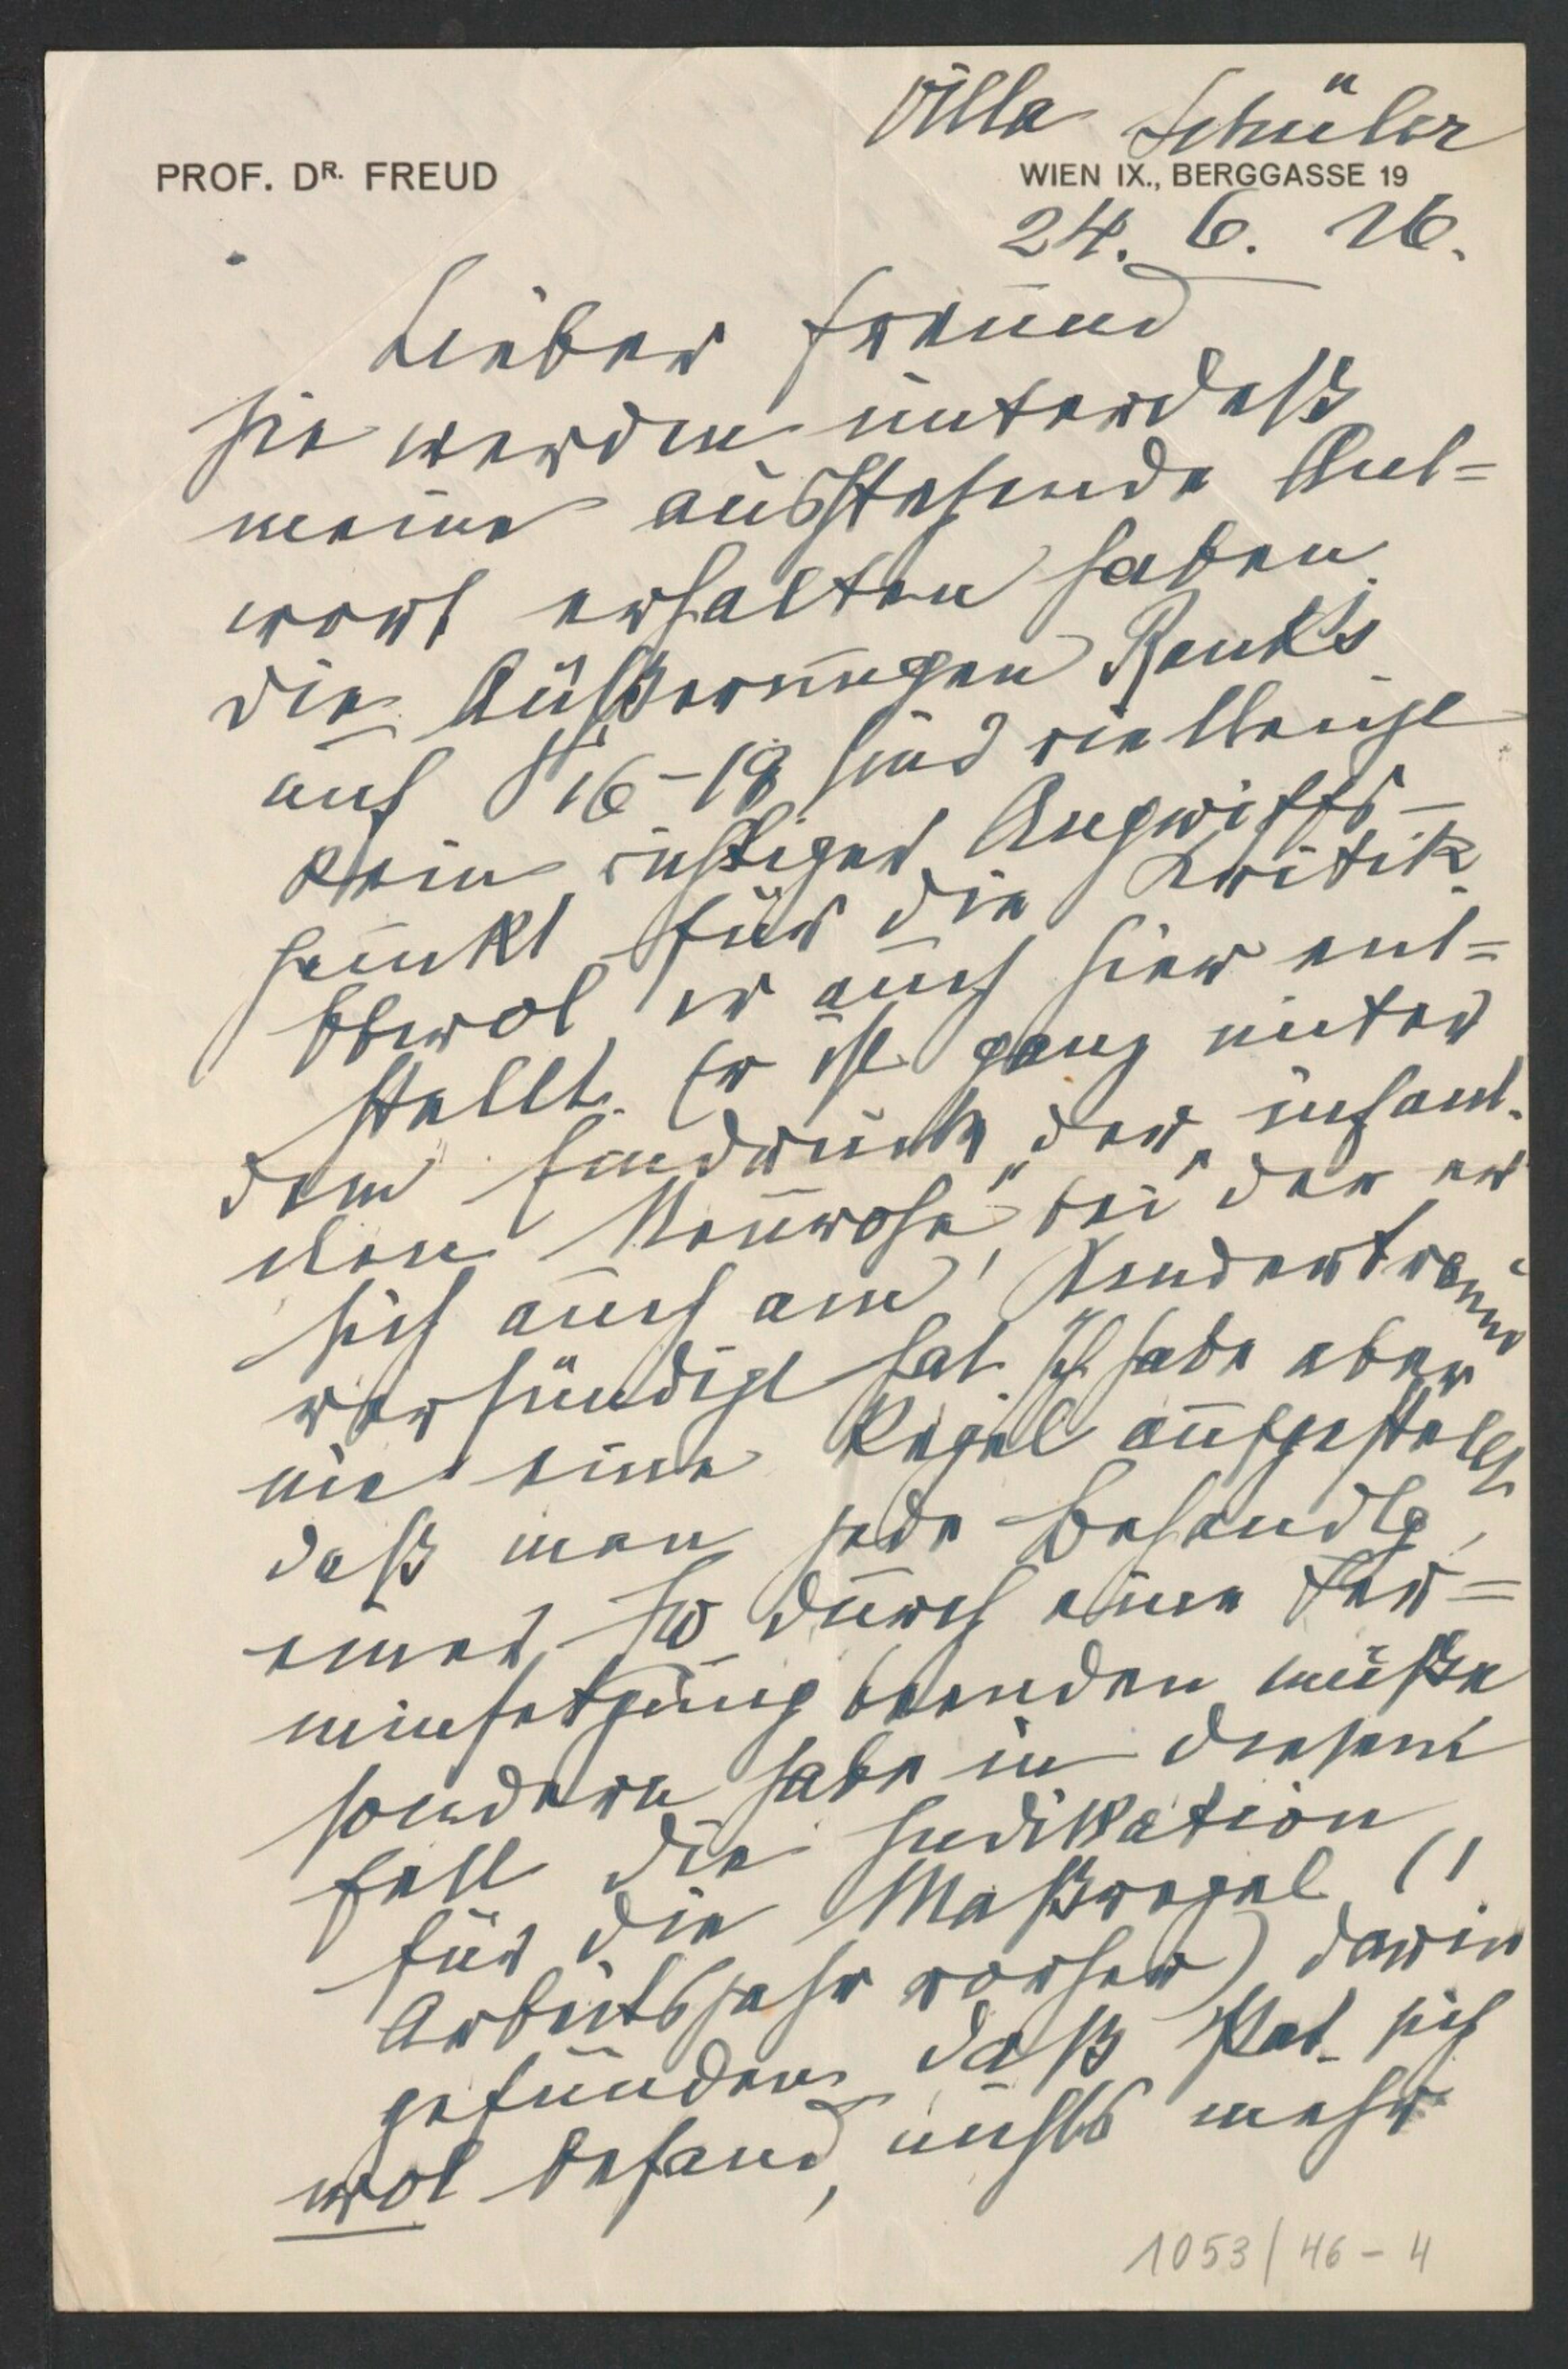 Villa Schüler
PROF. DR. FREUD
WIEN IX., BERGGASSE 19
24. 6. 26.
Lieber Freund
Sie werden unterdeß
meine ausstehende Ant=
wort erhalten haben.
Die Äußerungen Rank's
auf S 16–19 sind vielleicht
kein richtiger Angriffs–
punkt für die Kritik
obwol er auch hier ent=
stellt. Er ist ganz unter
dem Eindruck der „infant.
ilen Neurose“ bei der er
sich auch am Kindertraum
versündigt hat. Ich habe aber
nie eine Regel aufgestellt,
daß man jede Behandlg
einer so durch eine Ter=
minsetzung beenden müße
sondern habe in diesem
Fall die Indikation
für die Maßregel (1
Arbeitsjahr vorher) darin
gefunden daß Pat. sich
wol befand, nichts mehr
1053/46-4